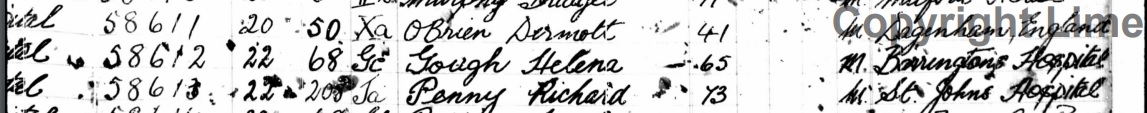 58611 20 50 Xa OBrien Dermott 41 M Dagenham, England
58612 22 68 Gc Gough Helena 65 M. Barringtons Hospital
58613 22 208 Ja Penny Richard 73 M St. Johns Hospital
Copyright Lime